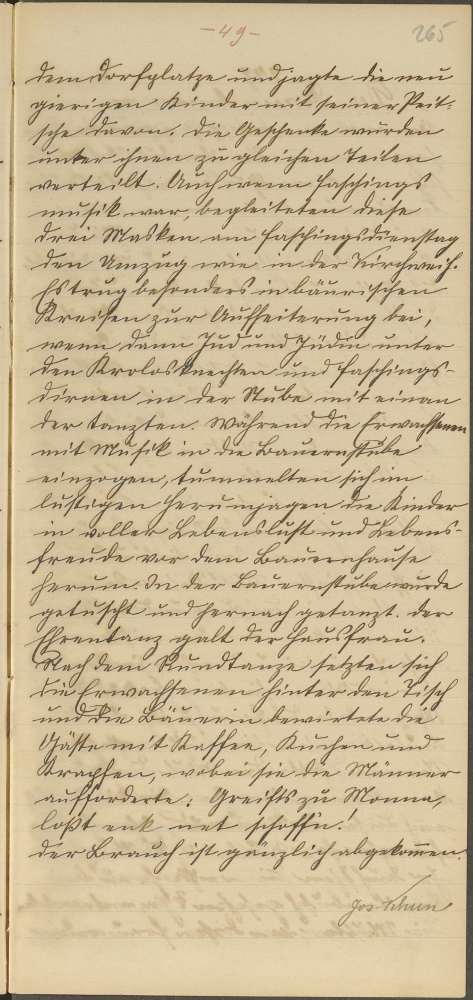 -49-
265
dem Dorfplatze und jagte die neu
gierigen Kinder mit seiner Peit-
sche davon. Die Geschenke wurden
unter ihnen zu gleichen Teilen
verteilt. Auch wenn Faschings
musik war, begleiteten diese
drei Masken am Faschingsdienstag
den Umzug wie in der Kirchweih.
Es trug besonders in bäurischen
Kreisen zur Aufheiterung bei,
wenn dann Jud und Jüdin unter
den Krolosknechten und Faschings-
dirnen in der Stube mit einan
der tanzten. Während die Erwachsenen
mit Musik in die Bauernstube
einzogen, tummelten sich im
lustigen Herumjagen die Kinder
in voller Lebenslust und Lebens-
freude vor dem Bauernhause
herum. In der Bauernstube wurde
getuscht und hernach getanzt. Der
Ehrentanz galt der Hausfrau.
Nach dem Rundtanze setzten sich
die Erwachsenen hinter den Tisch
und die Bäuerin bewirtete die
Gäste mit Kaffee, Kuchen und
Krapfen, wobei sie die Männer
aufforderte: Greifts zu Monna,
loßt enk net schoffn!
Der Brauch ist gänzlich abgekommen.
Jos